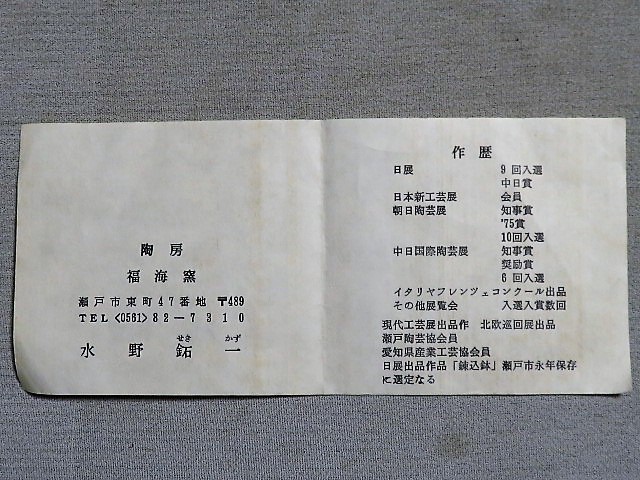 陶房
福海窯
瀬戸市東町47番地 〒489
TEL<0561>82-7310
せき かず
水野鉐一
作歴
日展 9回入選
中日賞
日本新工芸展 会員
朝日陶芸展 知事賞
'75賞
10回入選
中日国際陶芸展 知事賞
奨励賞
6回入選
イタリヤフレンツェコンクール出品
その他展覧会 入選入賞数回
現代工芸展出品作 北欧巡回展出品
瀬戸陶芸協会員
愛知県産業工芸協会員
日展出品作品「錬込鉢」瀬戸市永年保存
に選定なる